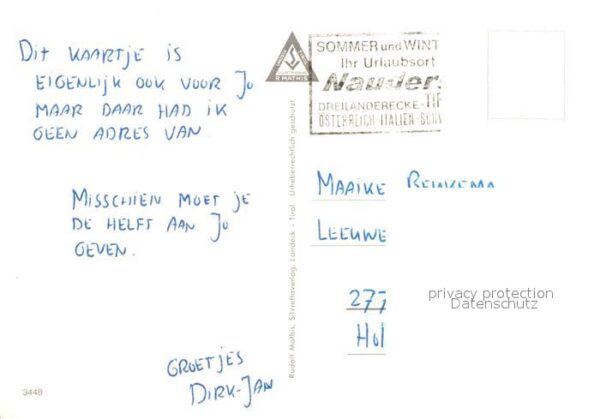 Dit kaartje is
eigenlijk ook voor Jo
maar daar had ik
geen adres van.
Misschien moet je
de helft aan Jo
geven.
Groetjes
Dirk-Jan
3448
R. MATHIS
Rudolf Mathis, Silvrettaverlag, Landeck - Tirol. Urheberrechtlich geschützt
SOMMER und WINT
Ihr Urlaubsort
Nauder
DREILÄNDERECKE-TIR
ÖSTERREICH-ITALIEN-SCHW
Maaike
Leeuwe
277
Hol
privacy protection
Datenschutz